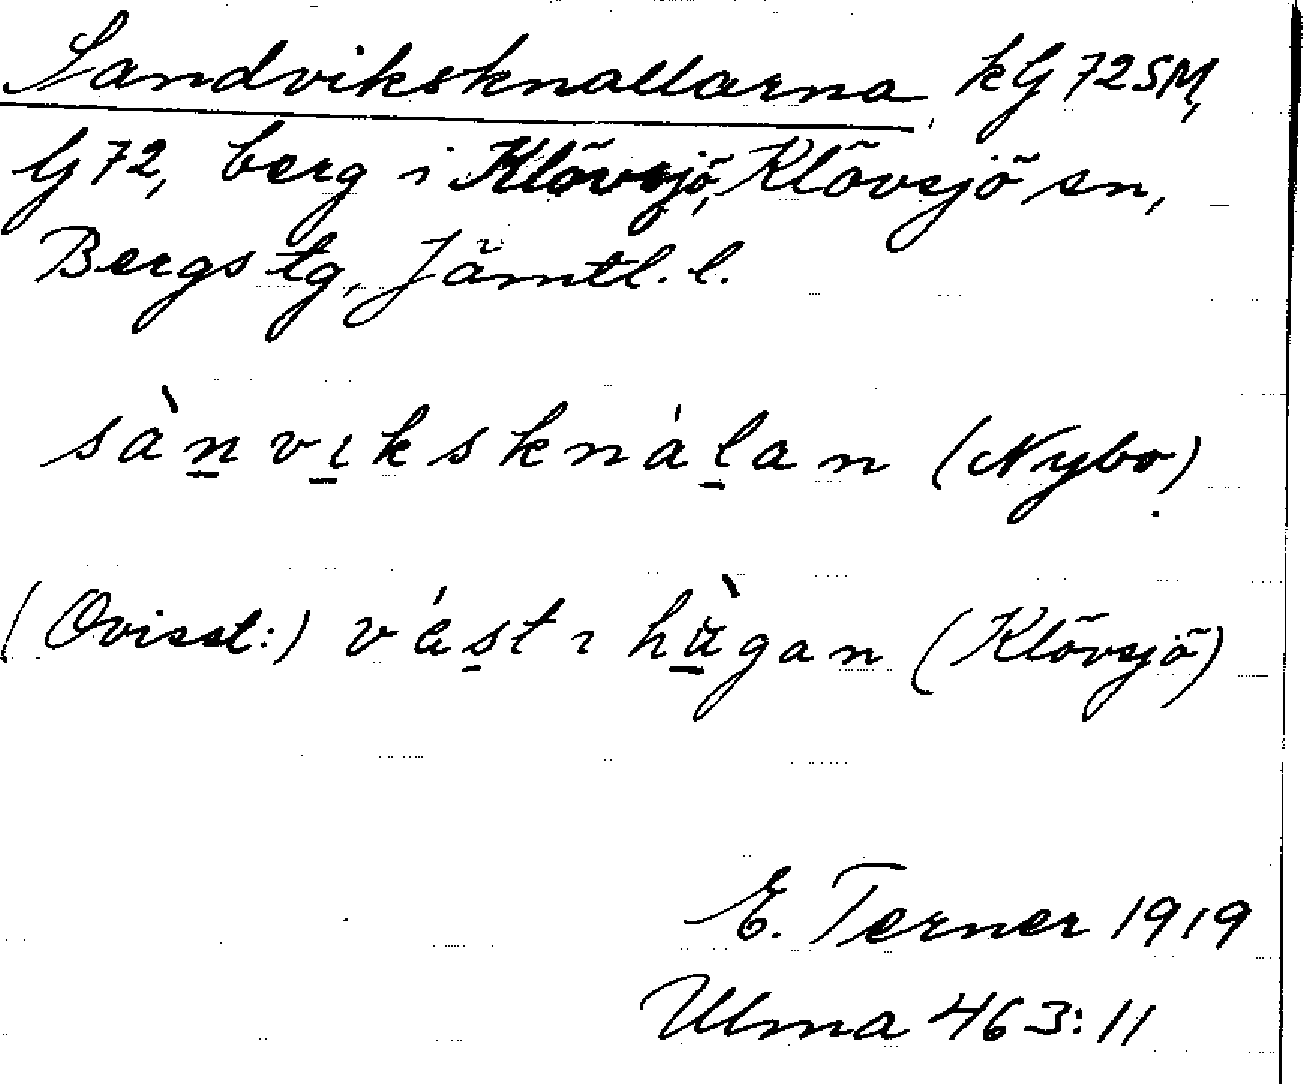 Sandviksknallarna, kG 72 SM,
G 72, berg i Klövsjö, Klövsjö sn,
Bergs tg, Jämtl. l.
sàn̲vı̲ksknál̲an (Nybo)
(Ovisst:) vás̲tı hä̲̀gan (Klövsjö)
E. Terner 1919
Ulma 463:11